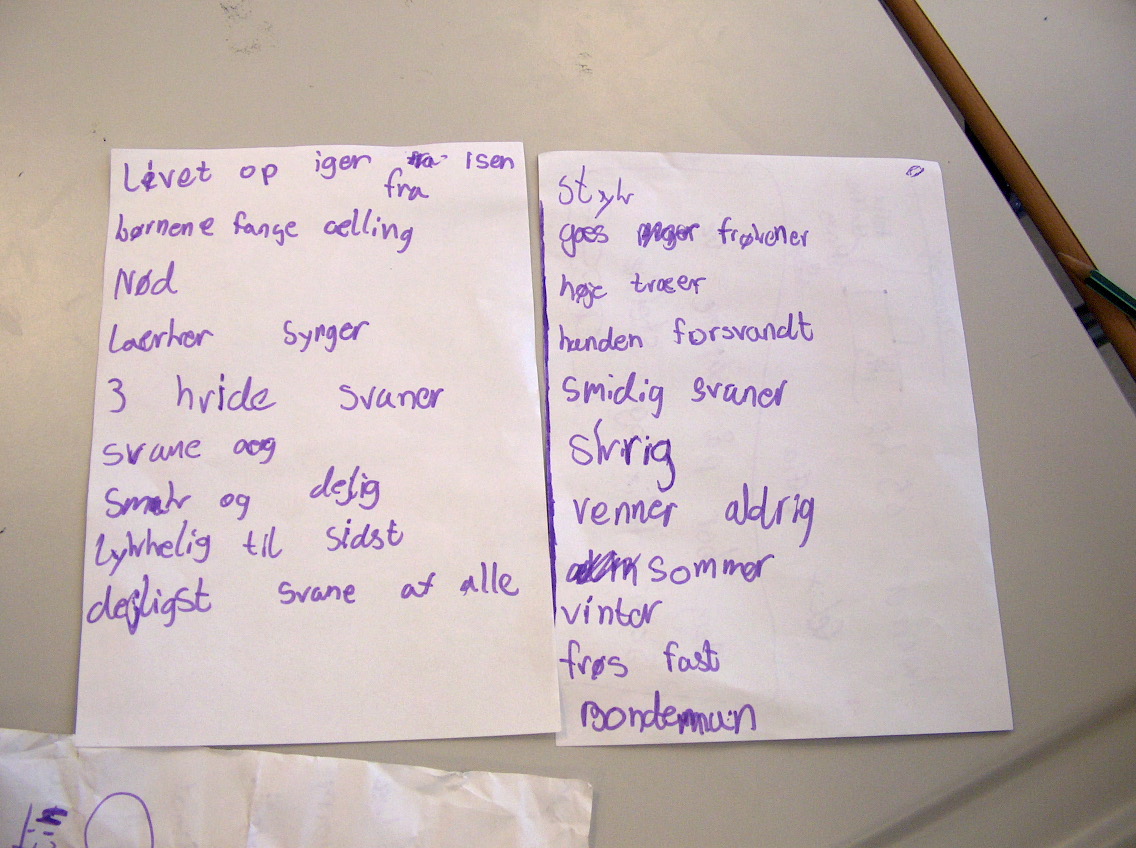 Livet op iger fra isen
børnene fange ælling
Nød
Lærker synger
3 hvide svaner
svane og
Smuk og dejlig
lykkelig til sidst
dejligst svane af alle
Styk
gæs frøkener
høje træer
hunden forsvandt
Smidig svaner
Skrig
venner aldrig
sommer
vinter
frøs fast
Bondeman